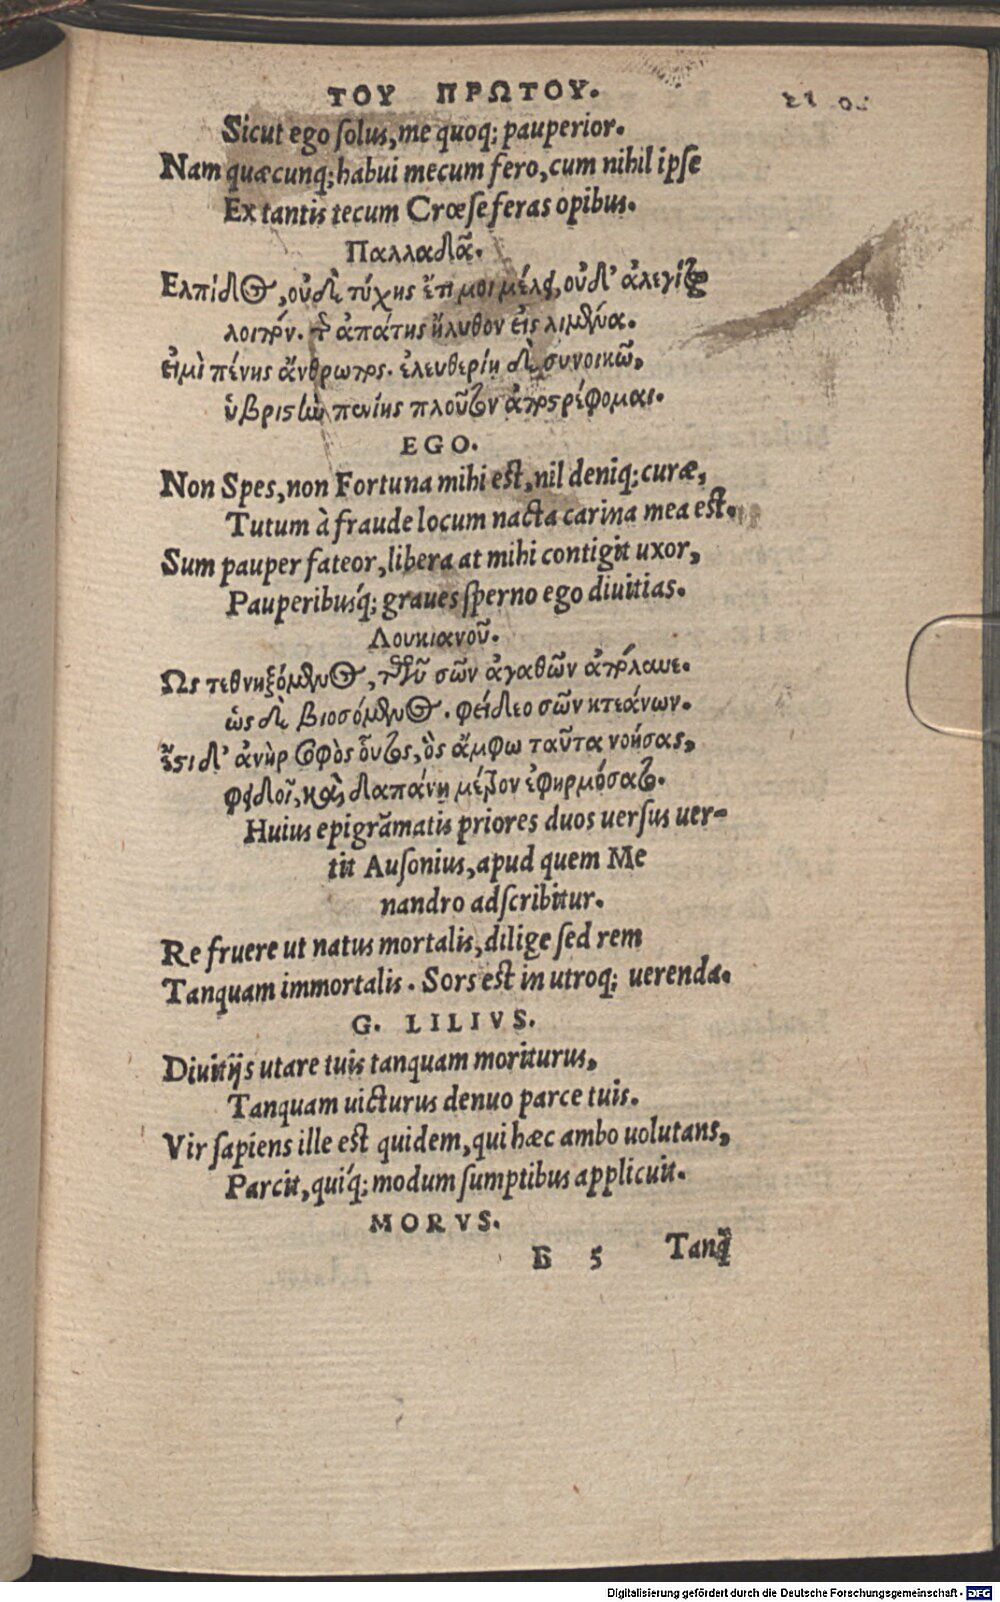 ΤΟΥ ΠΡΩΤΟΥ.
Sicut ego ſolus, me quoq; pauperior.
Nam quæcunq; habui mecum fero, cum nihil ipſe
Ex tantis tecum Crœſe feras opibus.
Παλλαδᾶ.
Ελπίδος, οὐδὲ τύχης ἔτι μοι μέλει, οὐδ' ἀλεγίζω
λοιπὸν. τῆς ἀπάτης ἤλυθον εἰς λιμένα.
εἰμὶ πένης ἄνθρωπος. ἐλευθερίῃ δὲ συνοικῶ,
ὑβριστὴν πενίης πλοῦτον ἀποστρέφομαι.
EGO.
Non Spes, non Fortuna mihi est, nil deniq; curæ,
Tutum à fraude locum nacta carina mea est.
Sum pauper fateor, libera at mihi contigit uxor,
Pauperibusq́; graues ſperno ego diuitias.
Λουκιανοῦ.
Ως τεθνηξόμενος, τῶν σῶν ἀγαθῶν ἀπόλαυε.
ὡς δὲ βιοσόμενος. φείδεο σῶν κτεάνων.
ἔστι δ' ἀνὴρ σοφὸς οὗτος, ὃς ἄμφω ταῦτα νοήσας,
φειδοῖ, καὶ δαπάνῃ μέτρον ἐφηρμόσατο.
Huius epigrãmatis priores duos uerſus uer-
tit Auſonius, apud quem Me
nandro adſcribitur.
Re fruere ut natus mortalis, dilige ſed rem
Tanquam immortalis. Sors est in utroq; uerenda.
G. LILIVS.
Diuitijs utare tuis tanquam moriturus,
Tanquam uicturus denuo parce tuis.
Vir ſapiens ille est quidem, qui hæc ambo uolutans,
Parcit, quiq́; modum ſumptibus applicuit.
MORVS.
B 5 Tanq̃
Digitalisierung gefördert durch die Deutsche Forschungsgemeinschaft - DFG